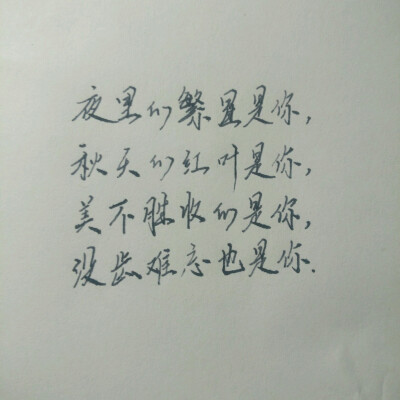 夜里的繁星是你，
秋天的红叶是你，
美不胜收的是你，
没齿难忘也是你.